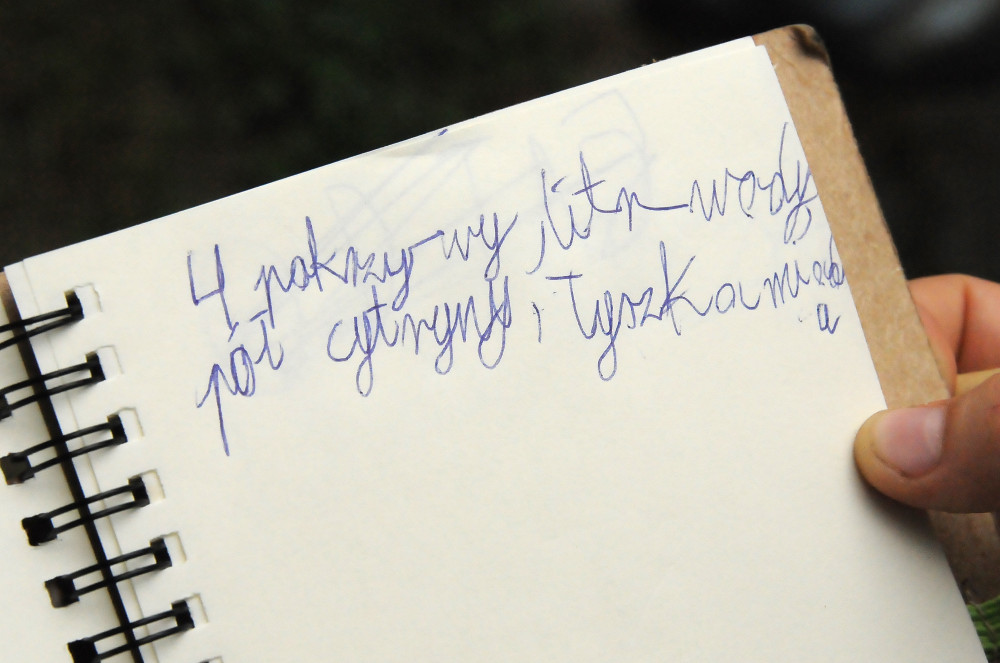 4 pokrzywy, litr wody,
pół cytryny, łyszka miod
a